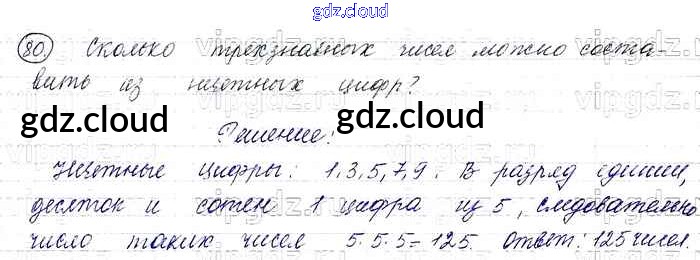 gdz.cloud
80. Сколько трехзначных чисел можно соста-
вить из нечетных цифр?
gdz.cloud gdz.cloud
Решение:
Нечетные цифры: 1,3,5,7,9. В разряд единиц,
десяток и сотен 1 цифра из 5, следовательно
число таких чисел 5·5·5=125. Ответ: 125 чисел.